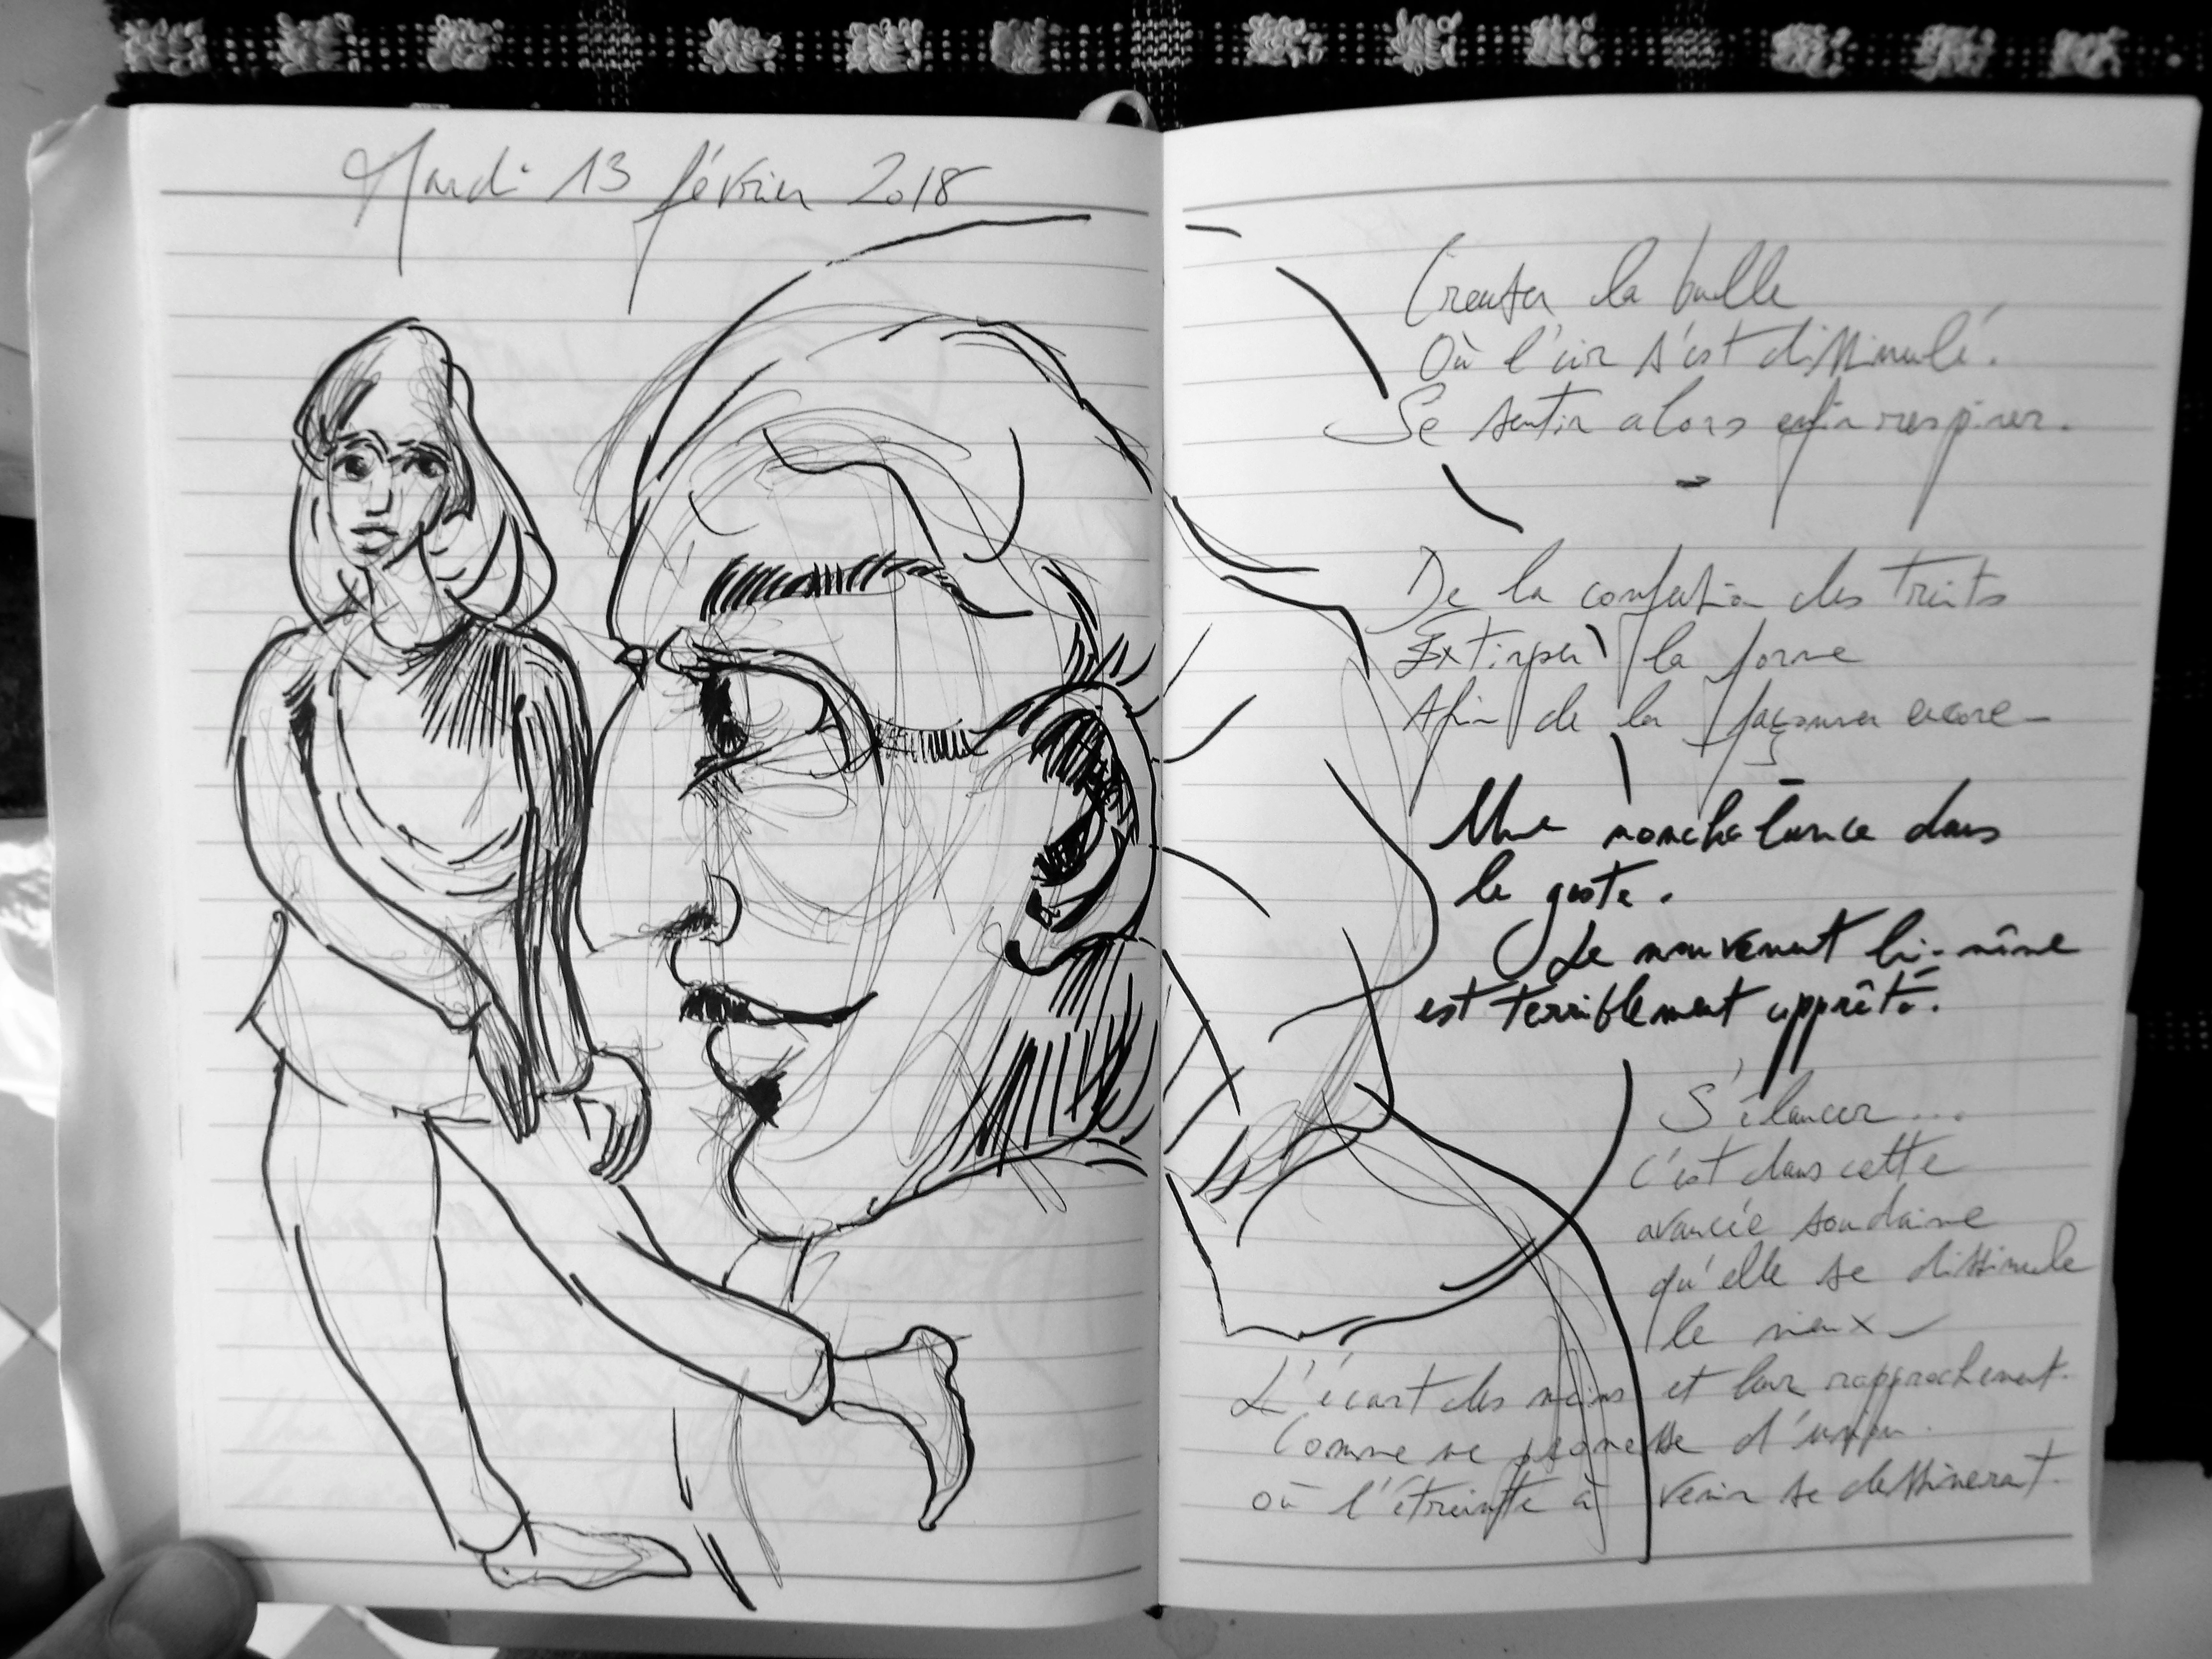 Mardi 13 février 2018
Creuser la bulle
Où l'air s'est dissimulé.
Se sentir alors enfin respirer.
De la confection des traits
Extirper la forme
Afin de la façonner encore
Une nonchalance dans
le geste.
Le mouvement lui-même
est terriblement apprêté.
S'élancer...
C'est dans cette
avancée soudaine
qu'elle se dissimule
le mieux
L'écart des mains et leur rapprochement.
Comme une promesse d'union
où l'étreinte à venir se dessinerait.